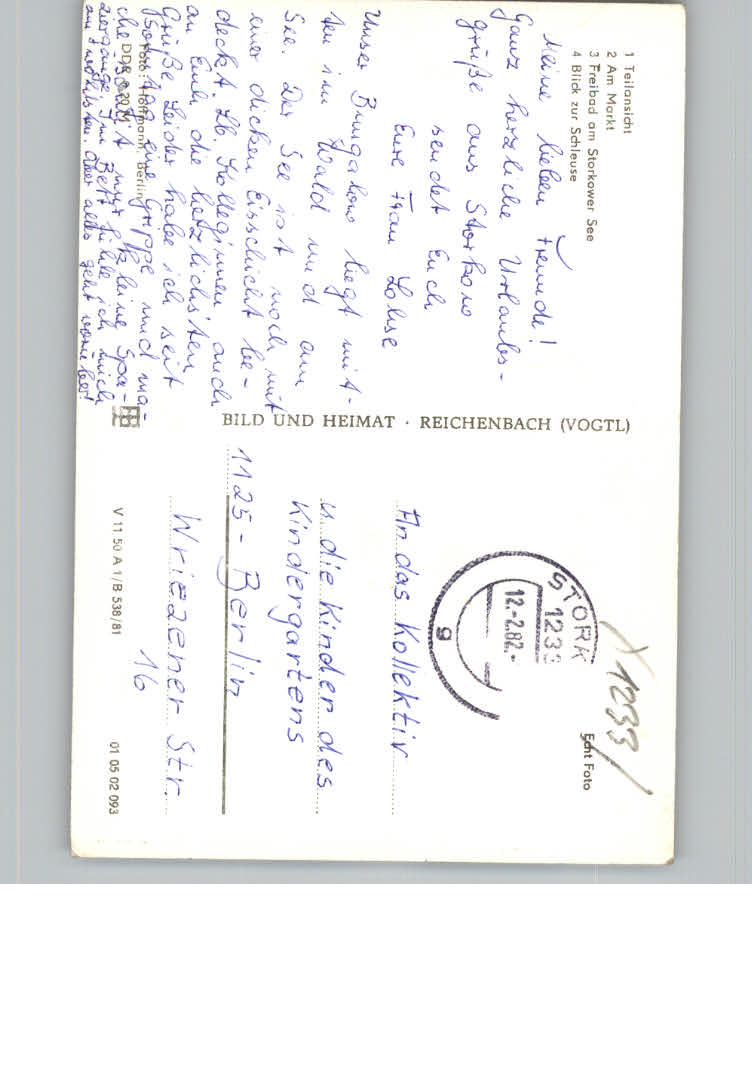 1 Teilansicht
2 Am Markt
3 Freibad am Storkower See
4 Blick zur Schleuse
Meine lieben Freunde!
Ganz herzliche Urlaubs-
grüße aus Storkow
sendet Euch
Eure Frau Lohse
Unser Bungalow liegt mit-
ten im Wald und am
See. Der See ist noch mit
einer dicken Eisschicht be-
deckt. Lb. Kolleginnen, auch
an Euch die herzlichsten
Grüße. Leider habe ich seit
eine Grippe und ma-
che nur kleine Spa-
ziergänge. Im Bett fühle ich mich
am wohlsten. Aber alles geht vorüber!
Foto: Hoffmann, Berlin
DDR 0,20 M
BILD UND HEIMAT · REICHENBACH (VOGTL)
STORK
1233
12.-2.82.-
9
1233
Echt Foto
An das Kollektiv
u. die Kinder des
Kindergartens
1125 - Berlin
Wriezener Str.
16
V 11 50 A 1/B 538/81
01 05 02 093